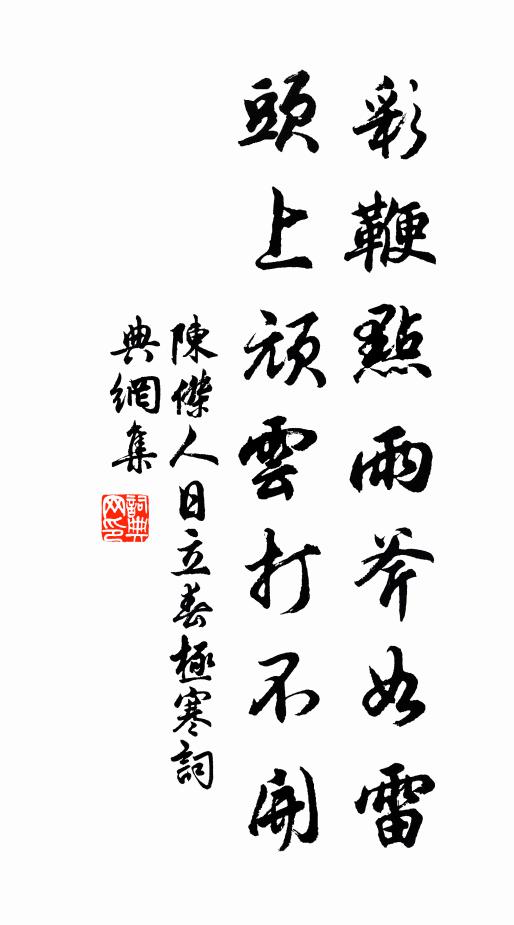 彩鞭點雨斧如雷
頭上頑雲打不開
陳傑人日立春極寒詞
典網集
詞典
网印